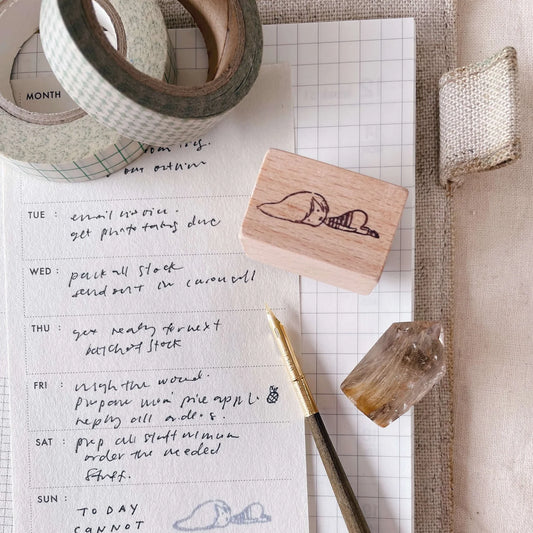 MONTH
TUE : email invoice.
get photo taking done
WED : pack all stock
send out in carousell
THU : get ready for next
batch of stock
FRI :
reply all orders.
SAT : prep all stuff
order the needed
stuff.
SUN :
TODAY
CANNOT